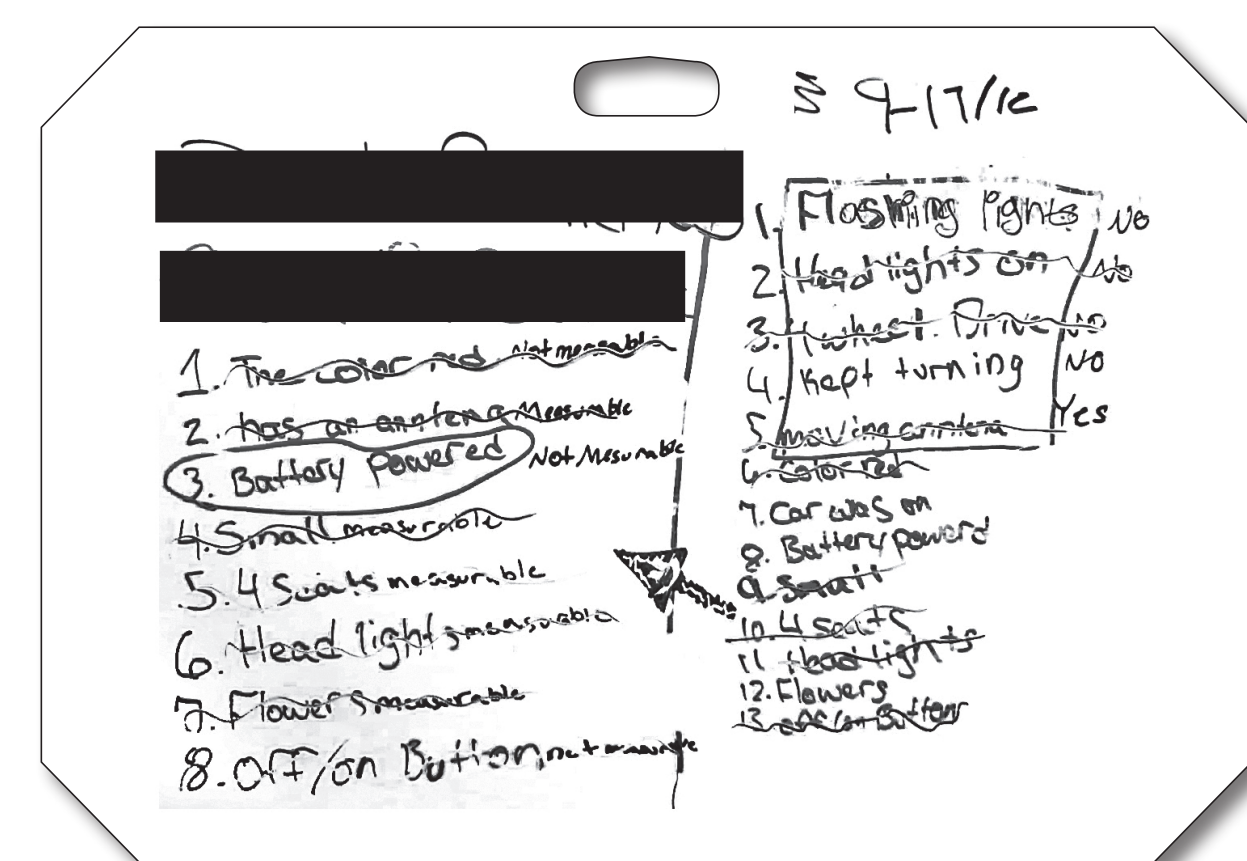 9-17/12
1. The color red Not measurable
2. has an anntena Measurable
3. Battery powered Not Mesurable
4. Small measurable
5. 4 Seats measurable
6. Head lights measurable
7. Flowers measurable
8. Off/on Button, not measurable
1. Flashing lights No
2. Headlights on No
3. 4 wheel. Drive NO
4. Kept turning NO
5. moving anntena Yes
6. Color red
7. Car was on
8. Battery powerd
9. Small
10. 4 seats
11 Headlights
12. Flowers
13. off/on Button